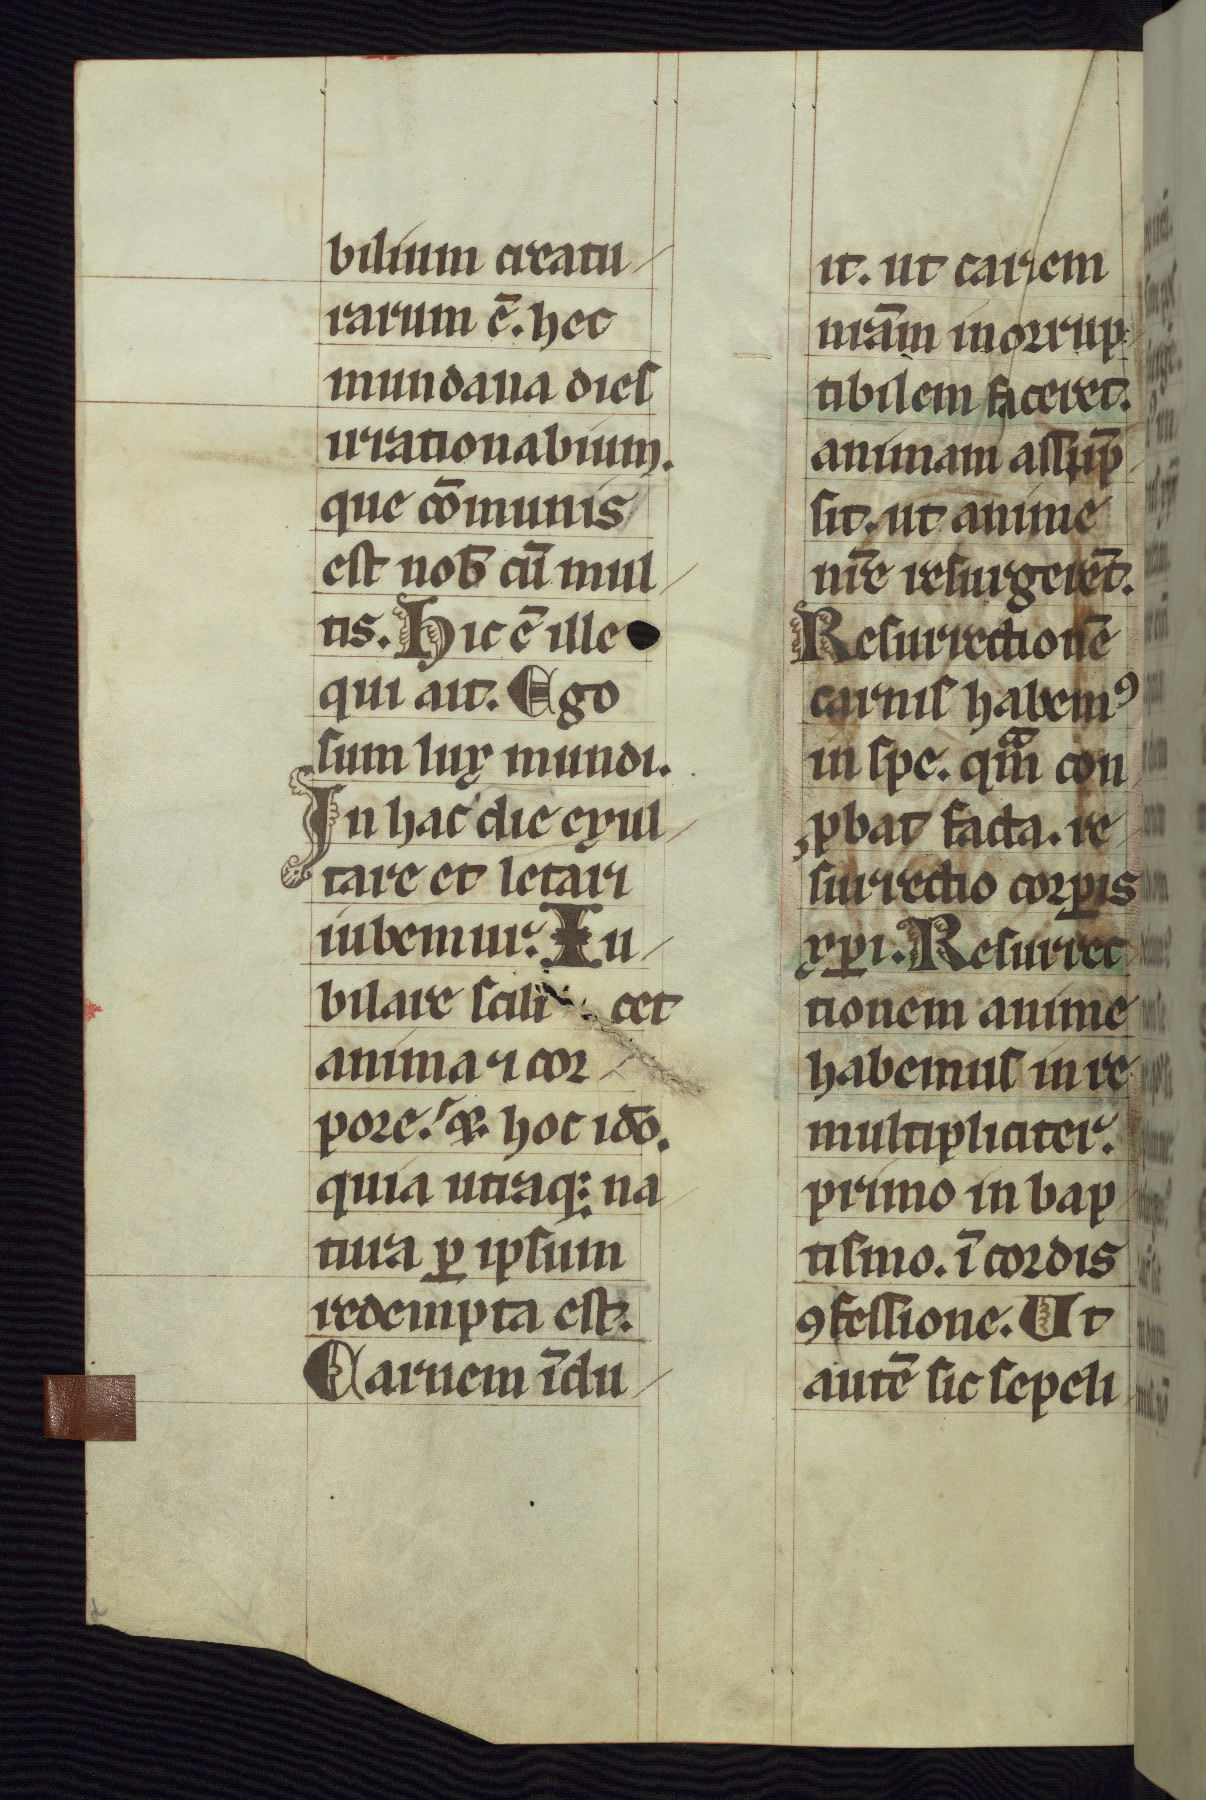 bilium creatu
rarum ē. hec
mundana dies
irrationabium.
que cōmunis
est nob̄ cū mul
tis. Hic ē ille
qui ait. Ego
sum lux mundi.
In hac die exul
tare et letari
iubemur. Iu
bilare scili cet
anima ⁊ cor
pore. hoc idō.
quia utraq; na
tura ꝑ ipsum
redempta est.
Carnem īdu
it. ut carnem
nrā̄m incorrup
tibilem faceret.
animam assūp̄
sit. ut anime
nr̄e resurgerēt.
Resurrectionē
carnis habemꝯ
in spe. qm̄ con
ꝓbat facta. re
surrectio corꝑis
xp̄i. Resurrec
tionem anime
habemus in re
multipliciter.
primo in bap
tismo. ī cordis
ꝯfessione. Ut
autē sic sepeli